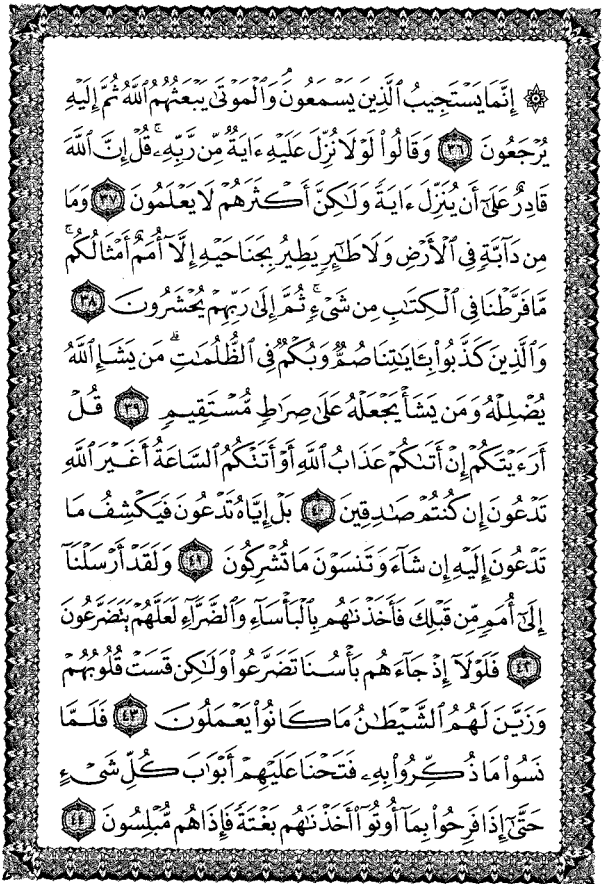 ۞ إِنَّمَا يَسْتَجِيبُ ٱلَّذِينَ يَسْمَعُونَۘ وَٱلْمَوْتَىٰ يَبْعَثُهُمُ ٱللَّهُ ثُمَّ إِلَيْهِ
يُرْجَعُونَ ٣٦ وَقَالُوا۟ لَوْلَا نُزِّلَ عَلَيْهِ ءَايَةٌ مِّن رَّبِّهِۦۚ قُلْ إِنَّ ٱللَّهَ
قَادِرٌ عَلَىٰٓ أَن يُنَزِّلَ ءَايَةً وَلَٰكِنَّ أَكْثَرَهُمْ لَا يَعْلَمُونَ ٣٧ وَمَا
مِن دَآبَّةٍ فِى ٱلْأَرْضِ وَلَا طَٰٓئِرٍ يَطِيرُ بِجَنَاحَيْهِ إِلَّآ أُمَمٌ أَمْثَالُكُمۚ
مَّا فَرَّطْنَا فِى ٱلْكِتَٰبِ مِن شَىْءٍۚ ثُمَّ إِلَىٰ رَبِّهِمْ يُحْشَرُونَ ٣٨
وَٱلَّذِينَ كَذَّبُوا۟ بِـَٔايَٰتِنَا صُمٌّ وَبُكْمٌ فِى ٱلظُّلُمَٰتِۗ مَن يَشَإِ ٱللَّهُ
يُضْلِلْهُ وَمَن يَشَأْ يَجْعَلْهُ عَلَىٰ صِرَٰطٍ مُّسْتَقِيمٍ ٣٩ قُلْ
أَرَءَيْتَكُمْ إِنْ أَتَىٰكُمْ عَذَابُ ٱللَّهِ أَوْ أَتَتْكُمُ ٱلسَّاعَةُ أَغَيْرَ ٱللَّهِ
تَدْعُونَ إِن كُنتُمْ صَٰدِقِينَ ٤٠ بَلْ إِيَّاهُ تَدْعُونَ فَيَكْشِفُ مَا
تَدْعُونَ إِلَيْهِ إِن شَآءَ وَتَنسَوْنَ مَا تُشْرِكُونَ ٤١ وَلَقَدْ أَرْسَلْنَآ
إِلَىٰٓ أُمَمٍ مِّن قَبْلِكَ فَأَخَذْنَٰهُم بِٱلْبَأْسَآءِ وَٱلضَّرَّآءِ لَعَلَّهُمْ يَتَضَرَّعُونَ
٤٢ فَلَوْلَآ إِذْ جَآءَهُم بَأْسُنَا تَضَرَّعُوا۟ وَلَٰكِن قَسَتْ قُلُوبُهُمْ
وَزَيَّنَ لَهُمُ ٱلشَّيْطَٰنُ مَا كَانُوا۟ يَعْمَلُونَ ٤٣ فَلَمَّا
نَسُوا۟ مَا ذُكِّرُوا۟ بِهِۦ فَتَحْنَا عَلَيْهِمْ أَبْوَٰبَ كُلِّ شَىْءٍ
حَتَّىٰٓ إِذَا فَرِحُوا۟ بِمَآ أُوتُوٓا۟ أَخَذْنَٰهُم بَغْتَةً فَإِذَا هُم مُّبْلِسُونَ ٤٤